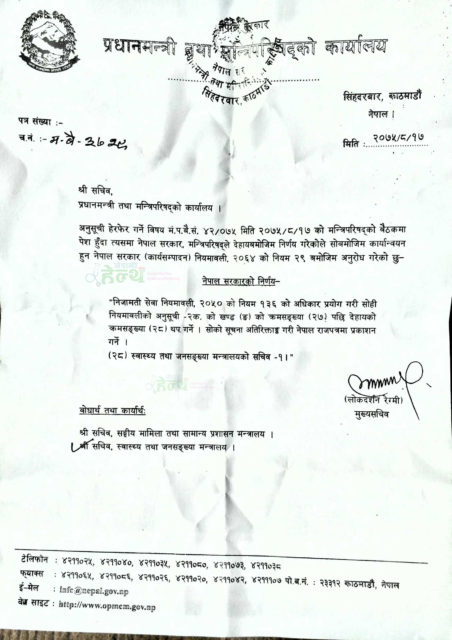 प्रधानमन्त्री तथा मन्त्रिपरिषद्को कार्यालय
नेपाल सरकार
सिंहदरबार, काठमाडौं
सिंहदरबार, काठमाडौं
नेपाल ।
पत्र संख्या :-
च.नं. :- म.बै. ३७२९
मिति : २०७५/८/१७
श्री सचिव,
प्रधानमन्त्री तथा मन्त्रिपरिषद्को कार्यालय ।
अनुसूची हेरफेर गर्ने विषय मं.प.बै.सं. ४२/०७५ मिति २०७५/८/१७ को मन्त्रिपरिषद्को बैठकमा
पेश हुँदा त्यसमा नेपाल सरकार, मन्त्रिपरिषद्ले देहायबमोजिम निर्णय गरेकोले सोबमोजिम कार्यान्वयन
हुन नेपाल सरकार (कार्यसम्पादन) नियमावली, २०६४ को नियम २९ बमोजिम अनुरोध गरेको छु-
हेल्थ
नेपाल सरकारको निर्णय-
"निजामती सेवा नियमावली, २०५० को नियम १३६ को अधिकार प्रयोग गरी सोही
नियमावलीको अनुसूची -२क. को खण्ड (ङ) को क्रमसङ्ख्या (२७) पछि देहायको
क्रमसङ्ख्या (२८) थप गर्ने । सोको सूचना अतिरिक्ताङ्क गरी नेपाल राजपत्रमा प्रकाशन
गर्ने ।
(२८) स्वास्थ्य तथा जनसङ्ख्या मन्त्रालयको सचिव -१।"
हेल्थ
(लोकदर्शन रेग्मी)
मुख्यसचिव
बोधार्थ तथा कार्यार्थः
श्री सचिव, सङ्घीय मामिला तथा सामान्य प्रशासन मन्त्रालय ।
श्री सचिव, स्वास्थ्य तथा जनसङ्ख्या मन्त्रालय ।
टेलिफोन : ४२११०२५, ४२११०४०, ४२११०३५, ४२११०८०, ४२११०७३, ४२११०३८
फ्याक्स : ४२११०६५, ४२११०८६, ४२११०२६, ४२११०२०, ४२११०४२, ४२१११०७ पो.ब.नं. : २३३१२ काठमाडौं, नेपाल
ई-मेल : info@nepal.gov.np
वेब साइट : http://www.opmcm.gov.np